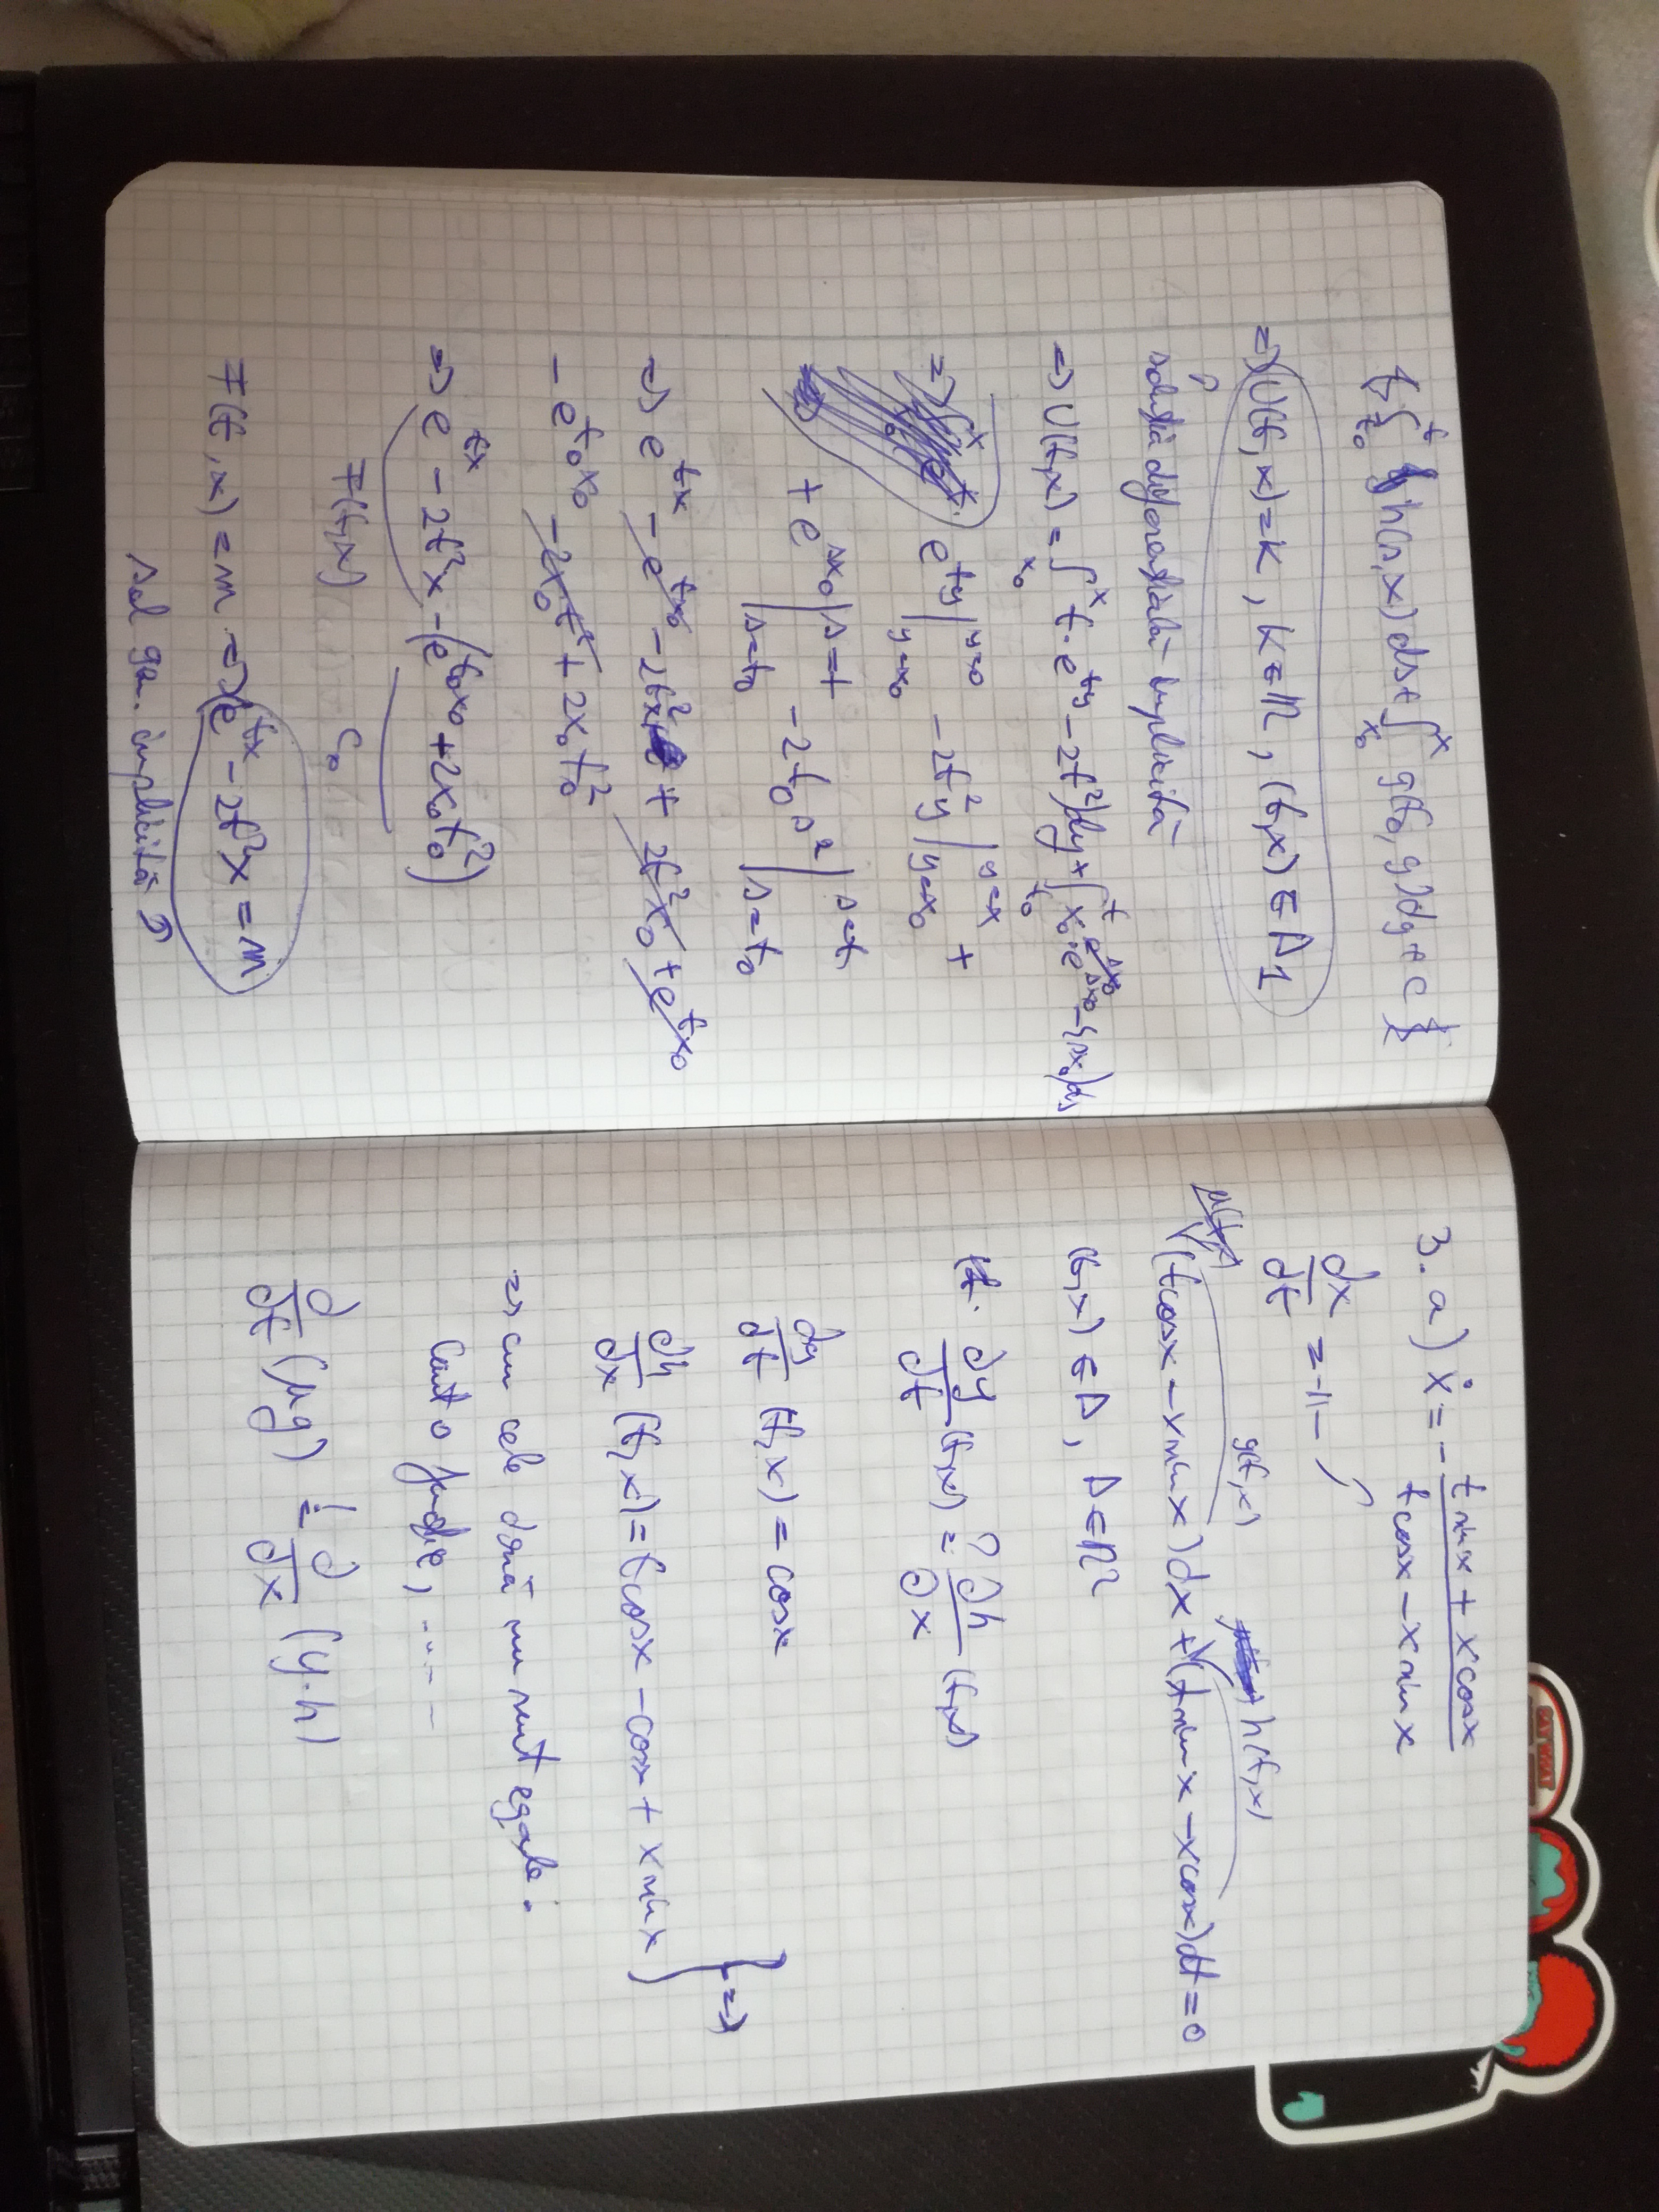 {∫_{t_0}^{t} h(s,x)ds + ∫_{x_0}^{x} g(t_0,y)dy + C}
=> U(t,x)=k, k∈ℝ, (t,x)∈Δ1
soluția diferențială implicită
=> U(t,x) = ∫_{x_0}^{x} t·e^{ty} - 2t²)dy + ∫_{t_0}^{t} x_0·e^{sx_0} - 4sx_0)ds
=> e^{ty}|_{y=x_0}^{y=x} - 2t²y|_{y=x_0}^{y=x} +
+ e^{sx_0}|_{s=t_0}^{s=t} - 2t_0s²|_{s=t_0}^{s=t}
=> e^{tx} - e^{tx_0} - 2t²x + 2t²x_0 + e^{tx_0}
- e^{t_0x_0} - 2x_0t² + 2x_0t_0²
=> e^{tx} - 2t²x - (e^{t_0x_0} + 2x_0t_0²)
F(t,x) C_0
F(t,x) = m => e^{tx} - 2t²x = m
sol gen. implicită
3. a) ẋ = - \frac{t sin x + x cosx}{t cosx - x sin x}
\frac{dx}{dt} = -||-
g(t,x) h(t,x)
(t cosx - x sin x)dx + (t sin x - x cosx)dt = 0
(t,x) ∈ Δ, Δ ∈ ℝ²
\frac{∂g}{∂t}(t,x) =? \frac{∂h}{∂x}(t,x)
\frac{∂g}{∂t}(t,x) = cosx
\frac{∂h}{∂x}(t,x) = t cosx - cosx + x sin x } =>
=> cum cele două nu sunt egale:
Caut o funcție, ....
\frac{∂}{∂t}(μg) =! \frac{∂}{∂x}(μ·h)
SAY WHAT